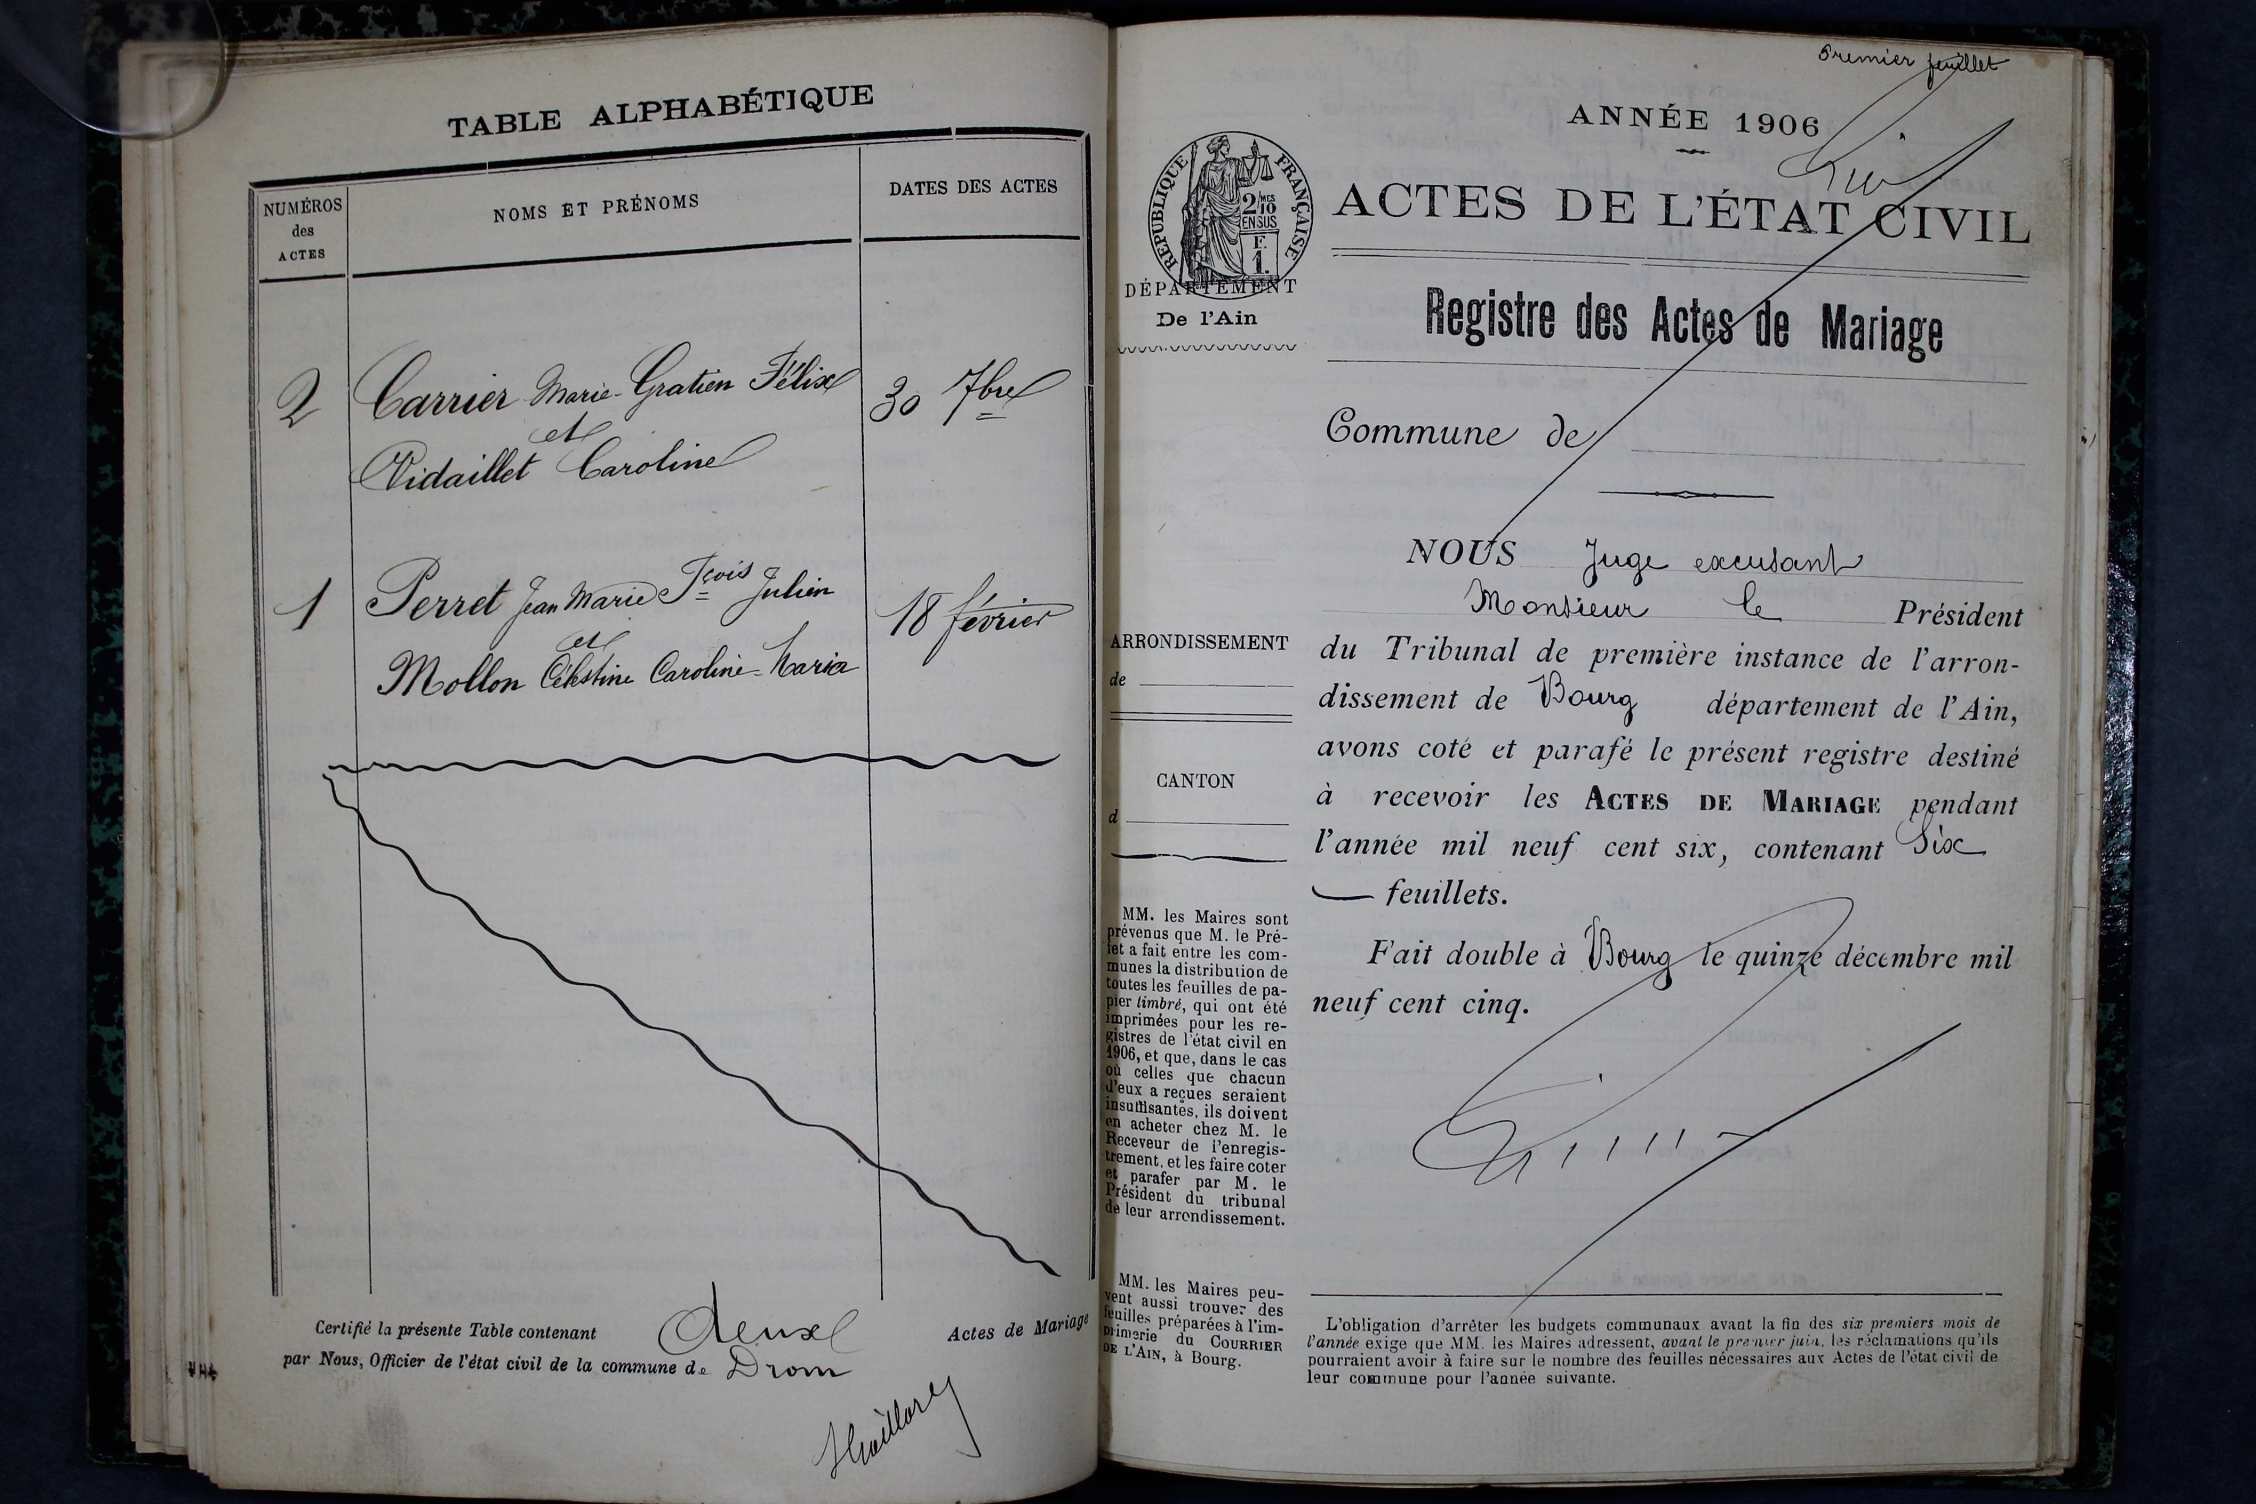 TABLE ALPHABÉTIQUE
NUMÉROS
des
ACTES
NOMS ET PRÉNOMS
DATES DES ACTES
2 Carrier Marie-Gratien Félix 30 7bre
et
Vidaillet Caroline
1 Perret Jean Marie Fçois Julien 18 février
et
Mollon Célestine Caroline-Maria
Certifié la présente Table contenant deux Actes de Mariage
par Nous, Officier de l'état civil de la commune de Drom
Premier feuillet
ANNÉE 1906
RÉPUBLIQUE FRANÇAISE
2/10
MES
EN SUS
F.
1.
ACTES DE L'ÉTAT CIVIL
DÉPARTEMENT
De l'Ain
Registre des Actes de Mariage
Commune de
NOUS Juge excusant
Monsieur le Président
ARRONDISSEMENT
de
CANTON
d
du Tribunal de première instance de l'arron-
dissement de Bourg département de l'Ain,
avons coté et parafé le présent registre destiné
à recevoir les ACTES DE MARIAGE pendant
l'année mil neuf cent six, contenant Six
feuillets.
Fait double à Bourg le quinze décembre mil
neuf cent cinq.
MM. les Maires sont
prévenus que M. le Pré-
fet a fait entre les com-
munes la distribution de
toutes les feuilles de pa-
pier timbré, qui ont été
imprimées pour les re-
gistres de l'état civil en
1906, et que, dans le cas
où celles que chacun
d'eux a reçues seraient
insuffisantes, ils doivent
en acheter chez M. le
Receveur de l'enregis-
trement, et les faire coter
et parafer par M. le
Président du tribunal
de leur arrondissement.
MM. les Maires peu-
vent aussi trouver des
feuilles préparées à l'im-
primerie du COURRIER
DE L'AIN, à Bourg.
L'obligation d'arrêter les budgets communaux avant la fin des six premiers mois de
l'année exige que MM. les Maires adressent, avant le premier juin, les réclamations qu'ils
pourraient avoir à faire sur le nombre des feuilles nécessaires aux Actes de l'état civil de
leur commune pour l'année suivante.